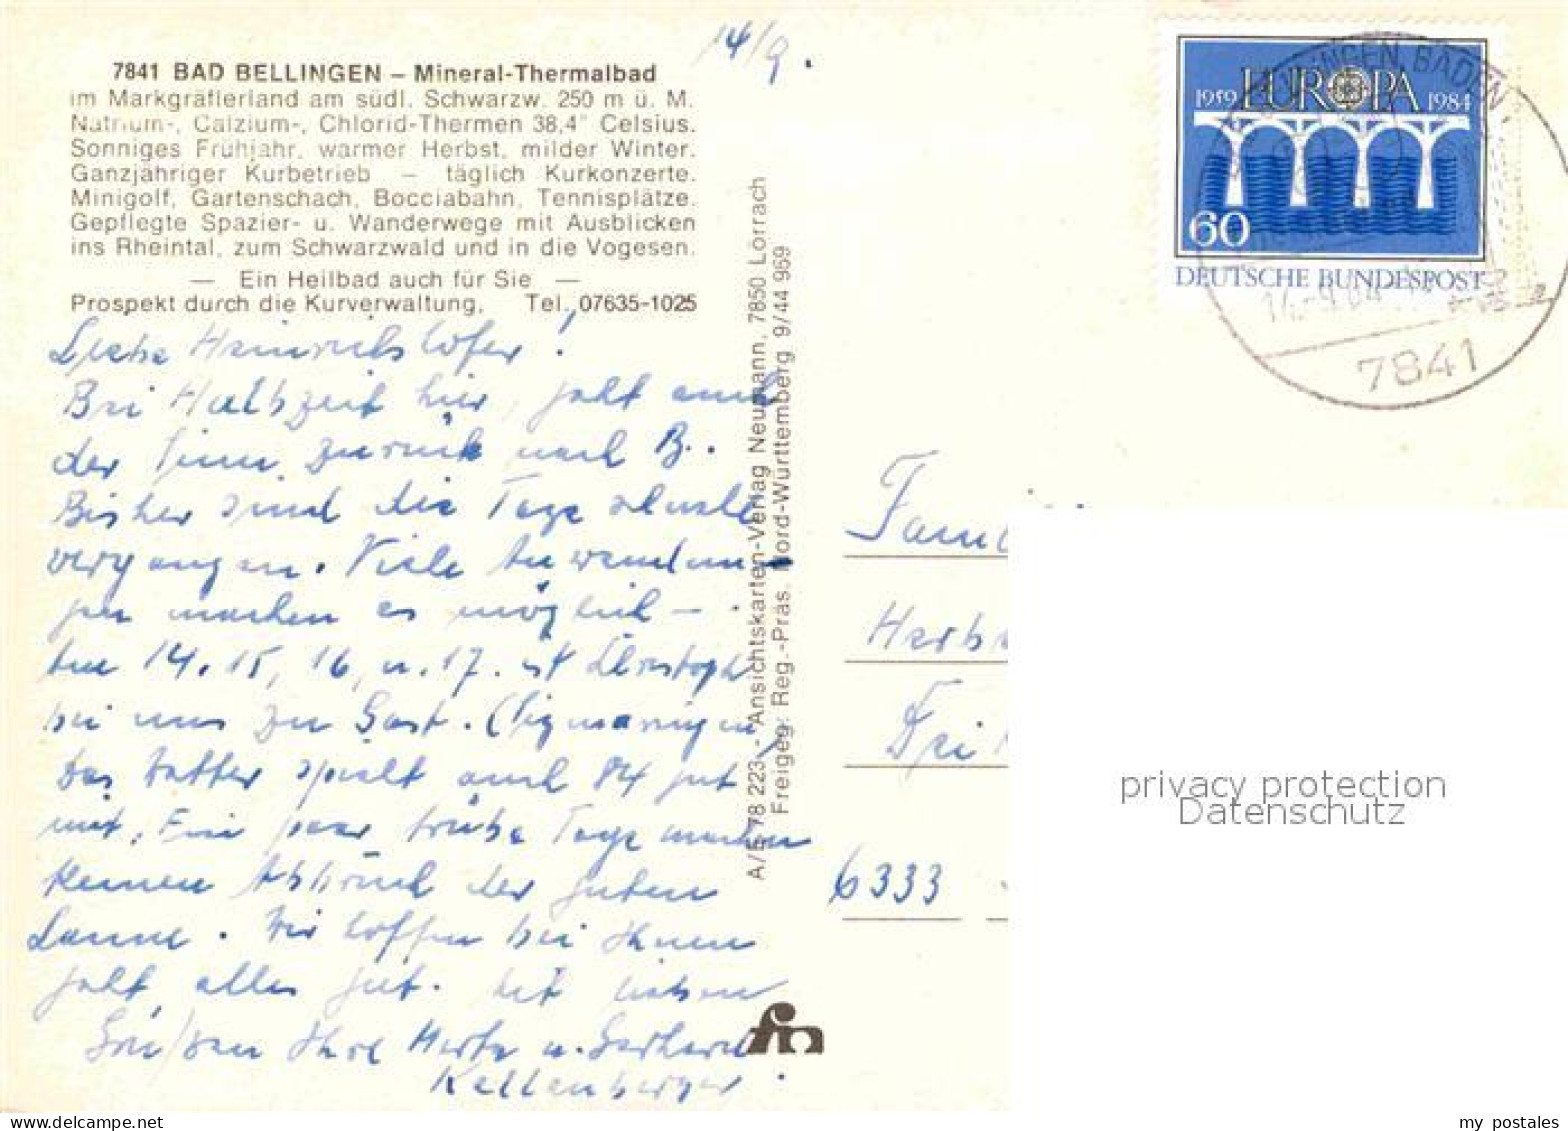 14/9.
7841 BAD BELLINGEN – Mineral-Thermalbad
im Markgräflerland am südl. Schwarzw. 250 m ü. M.
Natrium-, Calzium-, Chlorid-Thermen 38,4° Celsius.
Sonniges Frühjahr, warmer Herbst, milder Winter.
Ganzjähriger Kurbetrieb – täglich Kurkonzerte.
Minigolf, Gartenschach, Bocciabahn, Tennisplätze.
Gepflegte Spazier- u. Wanderwege mit Ausblicken
ins Rheintal, zum Schwarzwald und in die Vogesen.
— Ein Heilbad auch für Sie —
Prospekt durch die Kurverwaltung, Tel. 07635-1025
Liebe Heinrichshofer!
Bei Halbzeit hier, geht auch
der Sinn zurück nach B..
Bisher sind die Tage schnell
vergangen. Viele Anwendun-
gen machen es möglich –.
Am 14. 15, 16, u. 17. ist Christoph
bei uns zu Gast. (Sigmaringen)
Das Wetter spielt auch 84 gut
mit. Ein paar trübe Tage machen
keinen Abbruch der guten
Laune. Wir hoffen bei Ihnen
geht alles gut. Mit lieben
Grüßen Ihre Herta u. Gerhard
Kellenberger.
A/E 78 223 - Ansichtskarten-Verlag Neumann, 7850 Lörrach
Freigeg. Reg.-Präs. Nord-Württemberg 9/44 969
1959 EUROPA 1984
60
DEUTSCHE BUNDESPOST
BADEN
7841
Fami
Herb
6333
privacy protection
Datenschutz
my postales